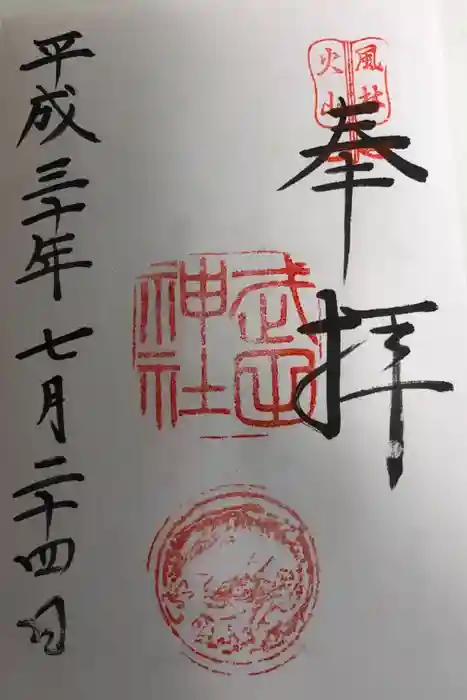 風林
火山
奉拝
武田
神社
平成三十年七月二十四日